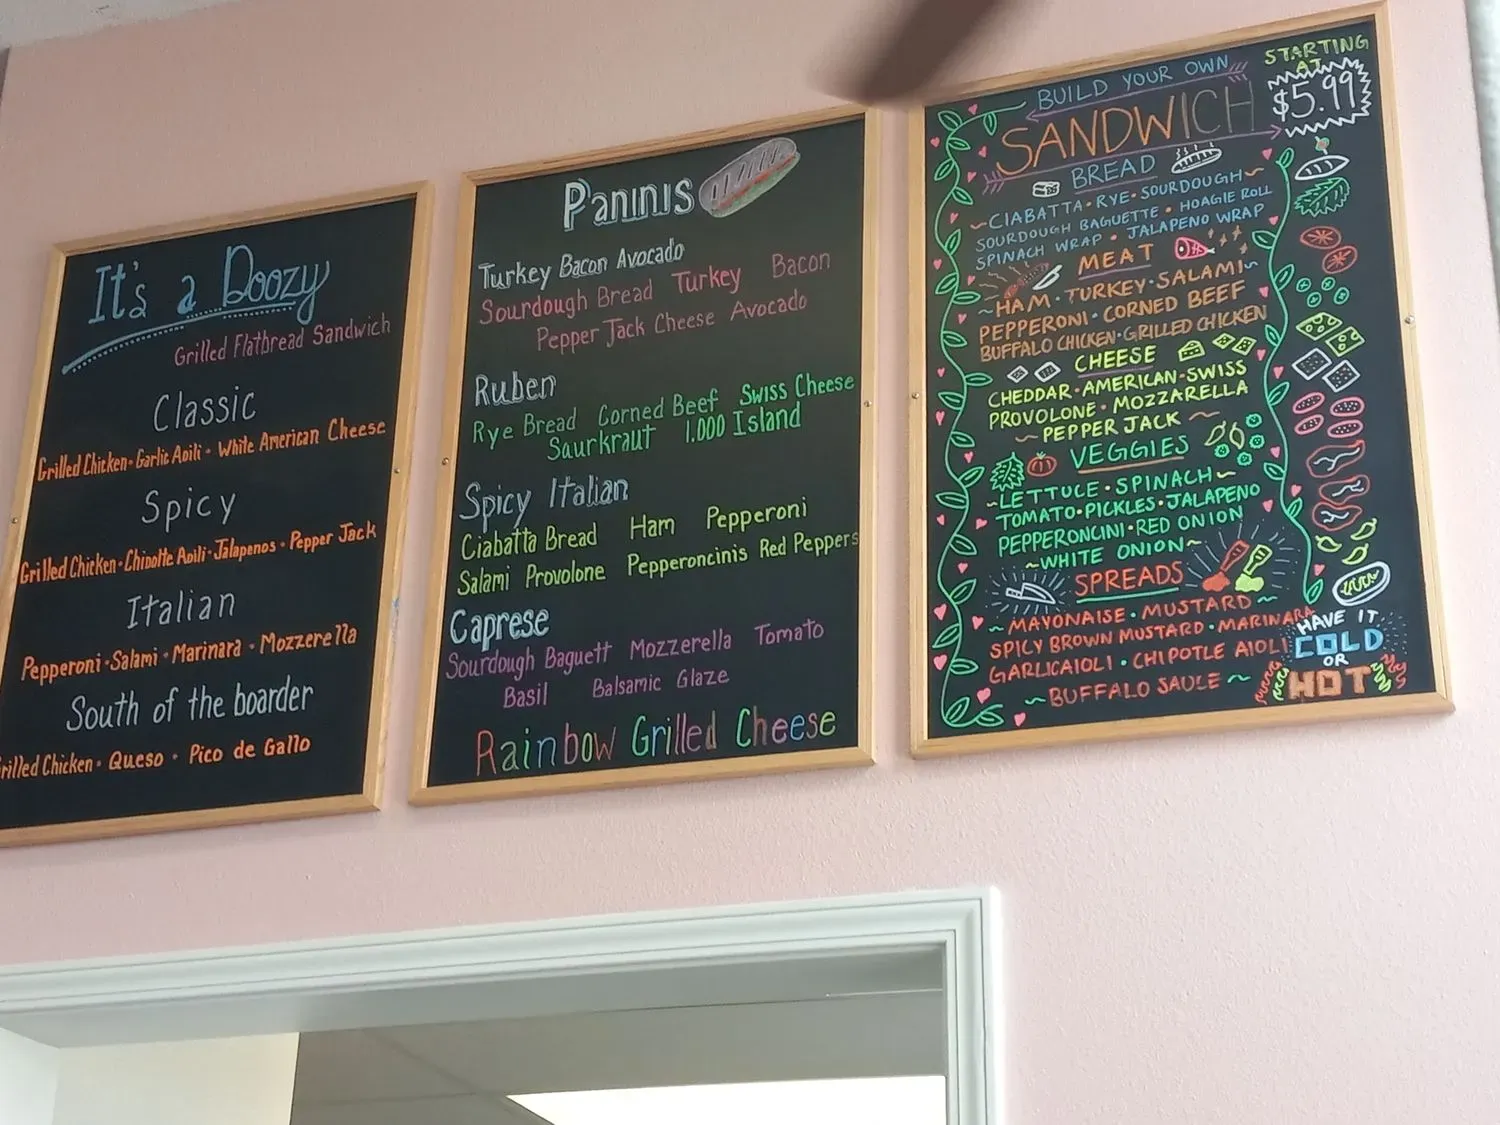 It's a Doozy
Grilled Flatbread Sandwich
Classic
Grilled Chicken • Garlic Aoili • White American Cheese
Spicy
Grilled Chicken • Chipotle Aoili • Jalapenos • Pepper Jack
Italian
Pepperoni • Salami • Marinara • Mozzerella
South of the boarder
Grilled Chicken • Queso • Pico de Gallo
Paninis
Turkey Bacon Avocado
Sourdough Bread Turkey Bacon
Pepper Jack Cheese Avocado
Ruben
Rye Bread Corned Beef Swiss Cheese
Saurkraut 1.000 Island
Spicy Italian
Ciabatta Bread Ham Pepperoni
Salami Provolone Pepperoncinis Red Peppers
Caprese
Sourdough Baguett Mozzerella Tomato
Basil Balsamic Glaze
Rainbow Grilled Cheese
BUILD YOUR OWN
SANDWICH
STARTING
AT
$5.99
BREAD
~CIABATTA • RYE • SOURDOUGH~
SOURDOUGH BAGUETTE • HOAGIE ROLL
SPINACH WRAP • JALAPENO WRAP
MEAT
~HAM • TURKEY • SALAMI~
PEPPERONI • CORNED BEEF
BUFFALO CHICKEN • GRILLED CHICKEN
CHEESE
CHEDDAR • AMERICAN • SWISS
PROVOLONE • MOZZARELLA
~PEPPER JACK~
VEGGIES
~LETTUCE • SPINACH~
TOMATO • PICKLES • JALAPENO
PEPPERONCINI • RED ONION
~WHITE ONION~
SPREADS
~MAYONAISE • MUSTARD~
SPICY BROWN MUSTARD • MARINARA
GARLICAIOLI • CHIPOTLE AIOLI
~BUFFALO SAUCE~
HAVE IT
COLD
OR
HOT